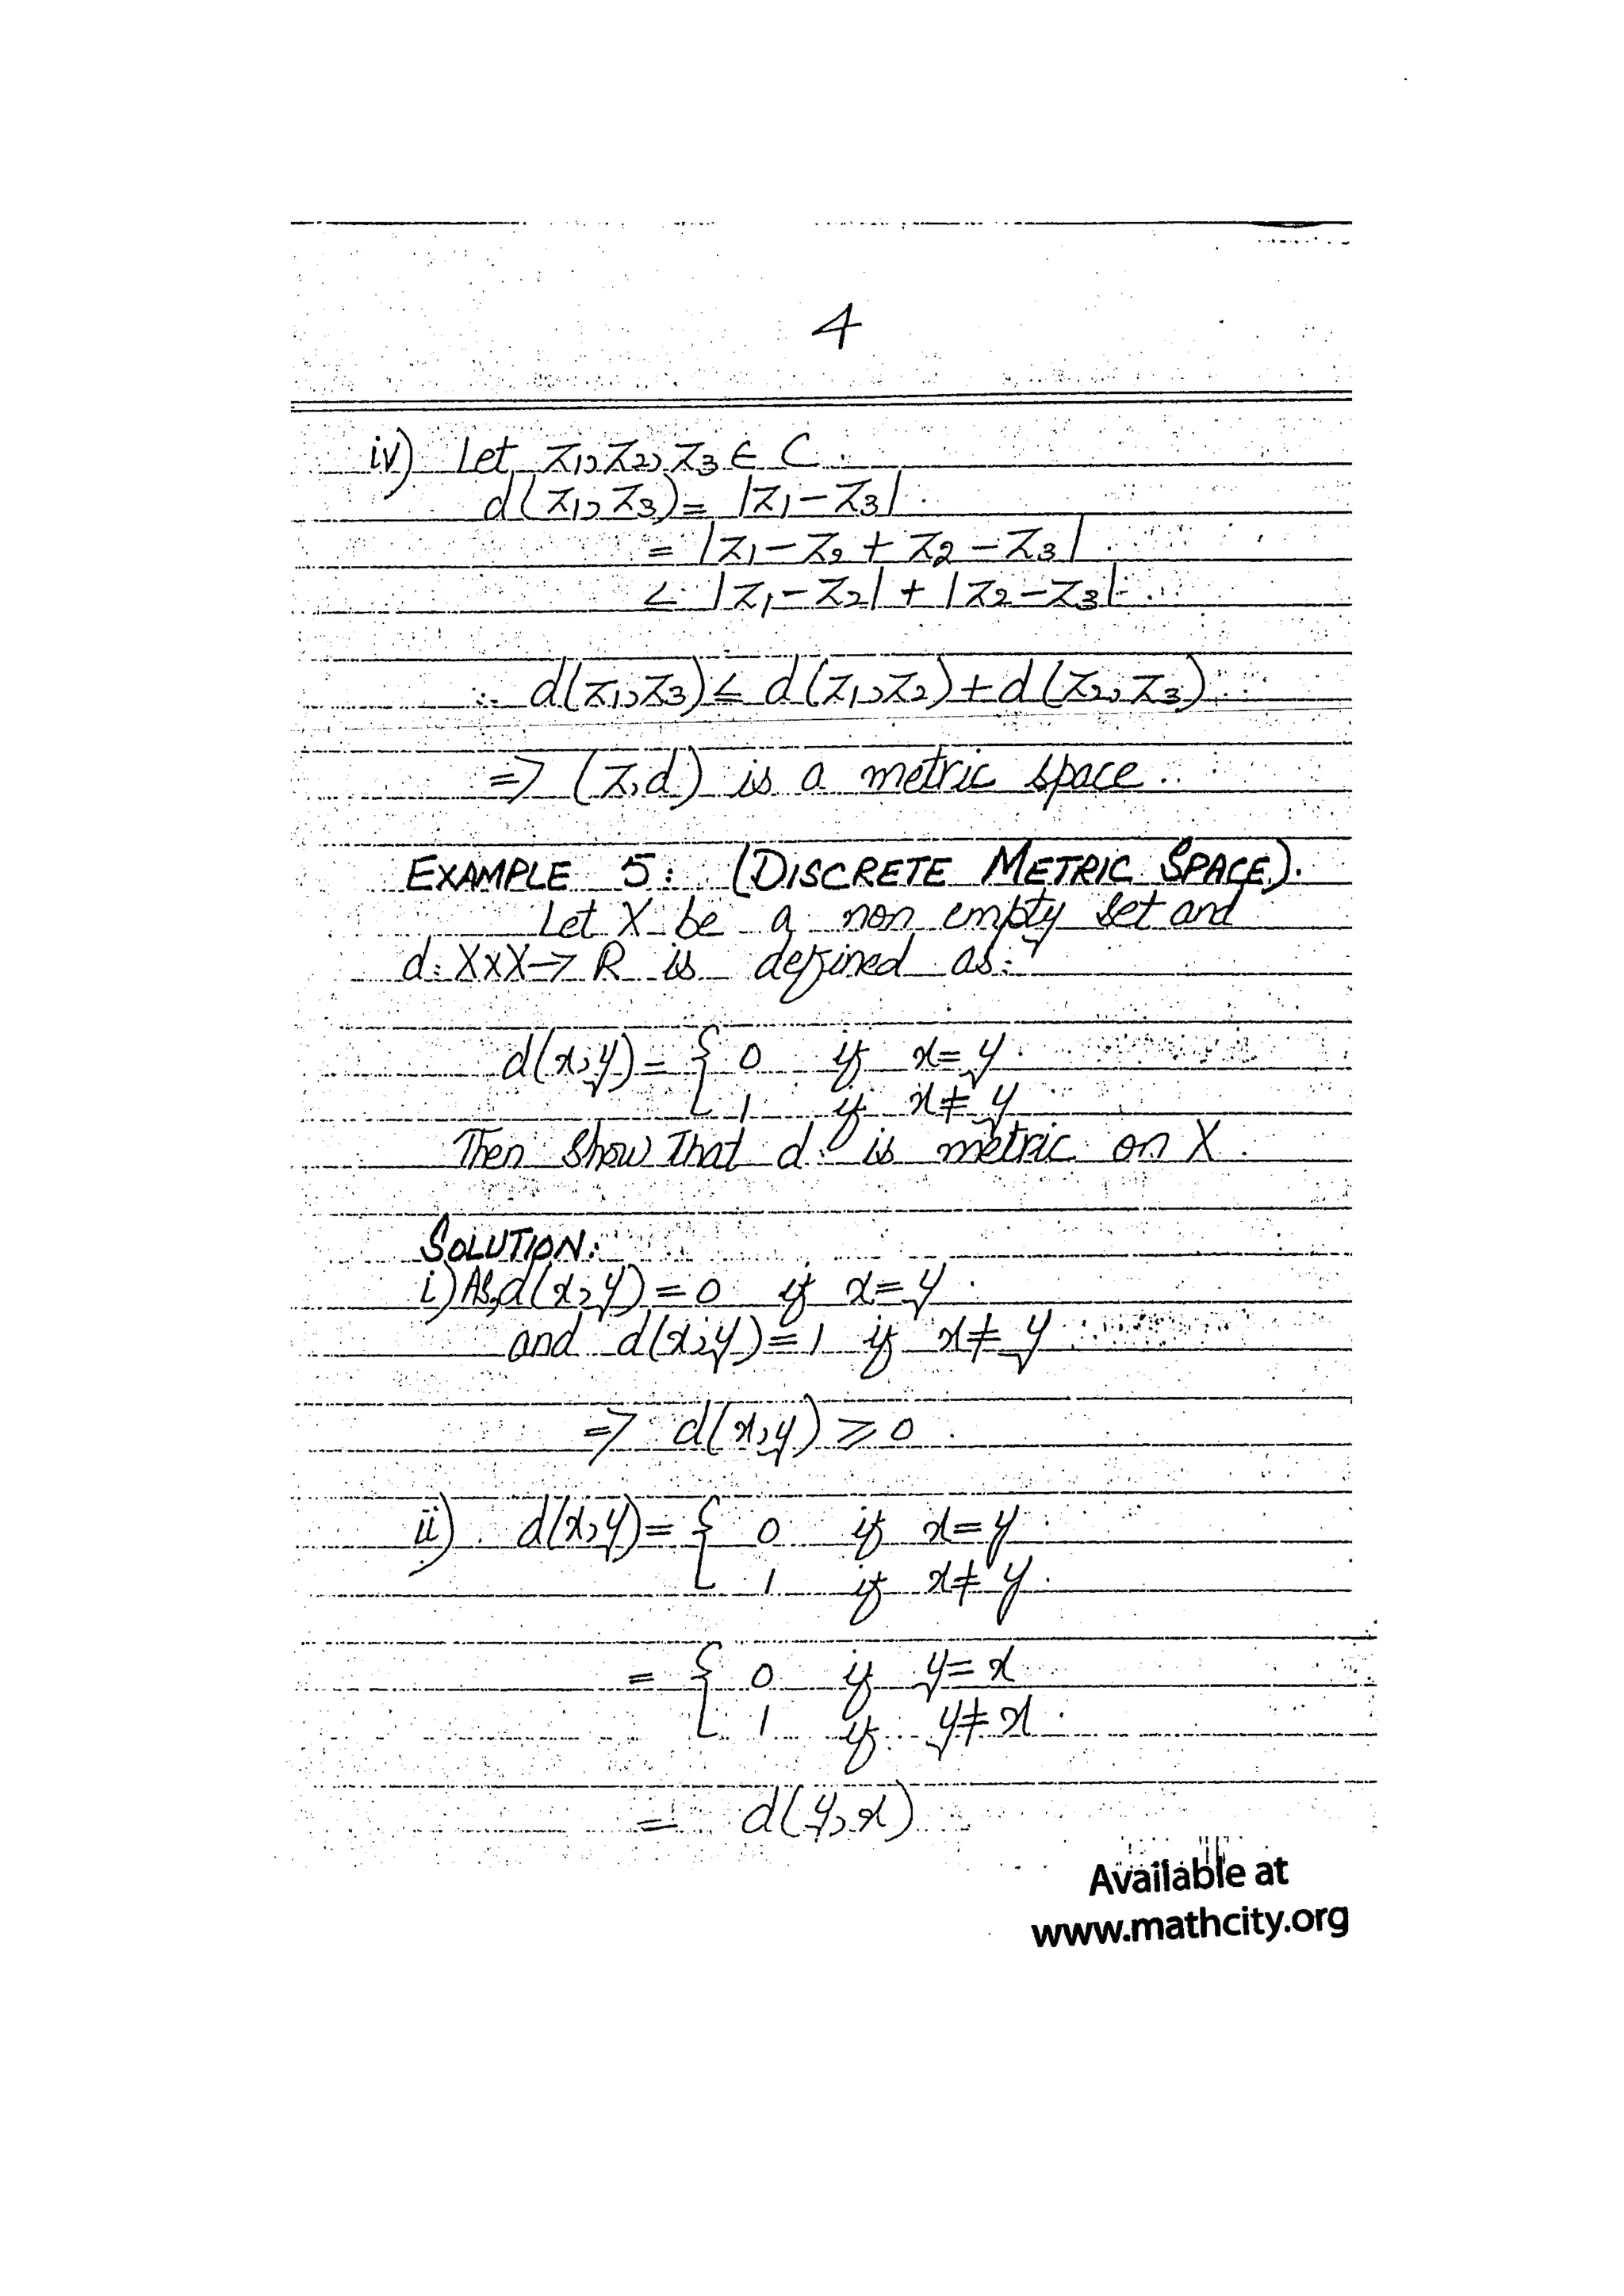 4
iv) Let z₁, z₂, z₃ ∈ C.
d(z₁, z₃) = |z₁ − z₃|
= |z₁ − z₂ + z₂ − z₃|
≤ |z₁ − z₂| + |z₂ − z₃|
∴ d(z₁, z₃) ≤ d(z₁, z₂) + d(z₂, z₃)
⇒ (z, d) is a metric space.
EXAMPLE 5: (DISCRETE METRIC SPACE).
Let X be a non empty set and
d: X×X → R is defined as:
d(x, y) = { 0 if x = y
1 if x ≠ y
Then Show That d is metric on X.
SOLUTION:
i) As, d(x, y) = 0 if x = y
and d(x, y) = 1 if x ≠ y
⇒ d(x, y) ≥ 0
ii) d(x, y) = { 0 if x = y
1 if x ≠ y
= { 0 if y = x
1 if y ≠ x
= d(y, x)
Available at
www.mathcity.org